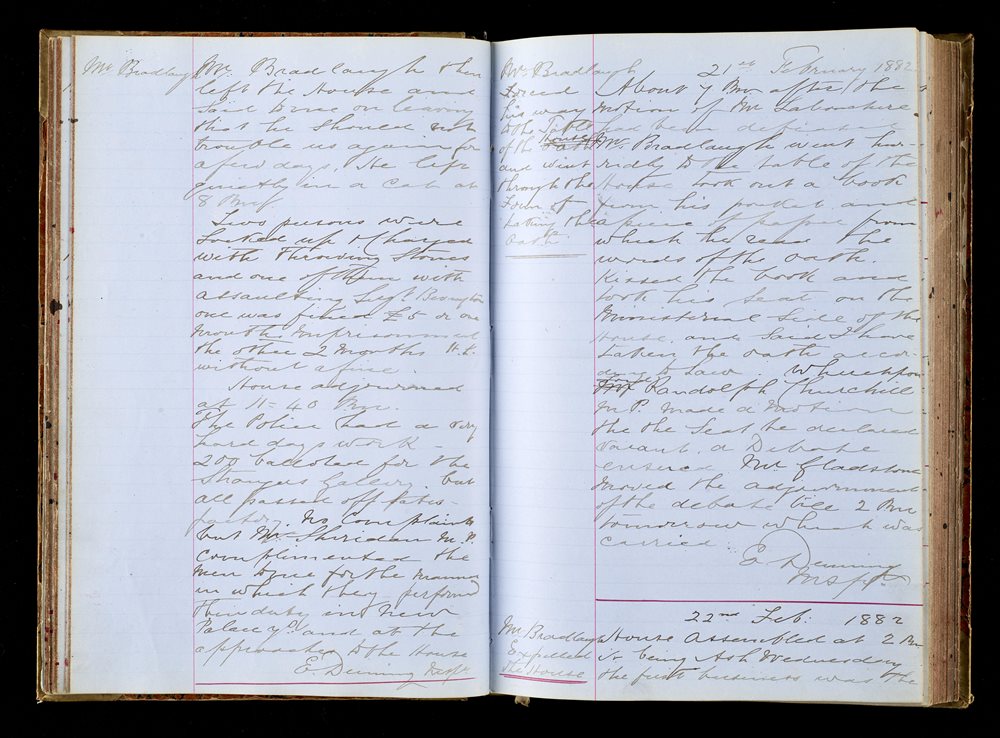 Mr Bradlaugh
Mr. Bradlaugh then
left the House and
said to me on leaving
that he should not
trouble us again for
a few days, He left
quietly in a Cab at
8 Pm/
Two persons were
Locked up & Charged
with Throwing Stones
and one of them with
assaulting Sergt.
one was fined £5 or one
month imprisonment
the other 2 Months H.L.
without a fine.
House adjourned
at 11=40 Pm.
The Police had a very
hard days work -
200 balloted for the
Strangers Gallery. but
all passed off satis-
factory. No Complaints
but Mr Sheridan M.P.
Complimented the
men to me for the manner
in which they performed
their duty in New
Palace yd. and at the
approaches to the House
E. Denning Inspr
Mr Bradlaugh
Forced
his way
to the Table
of the House
and went
through the
Form of
taking the
oath
21st February 1882
About 7 Pm after the
motion of Mr Labouchere
had been defeated
Mr. Bradlaugh went hur-
ridly to the table of the
House took out a book
from his pocket and
a piece of paper from
which he read the
words of the oath.
Kissed the book and
took his seat on the
Ministerial Side of the
House. and said I have
taken the oath accor-
ding to law. Whereupon
Randolph Churchill
M.P. made a motion
the the Seat be declared
vacant. a Debate
ensued Mr. Gladstone
moved the adjournment
of the debate till 2 Pm
tomorrow which was
carried
E Denning
Inspr
Mr Bradlaugh
Expelled
the House
22nd Feb: 1882
House Assembled at 2 Pm
it being Ash Wednesday
the first business was the